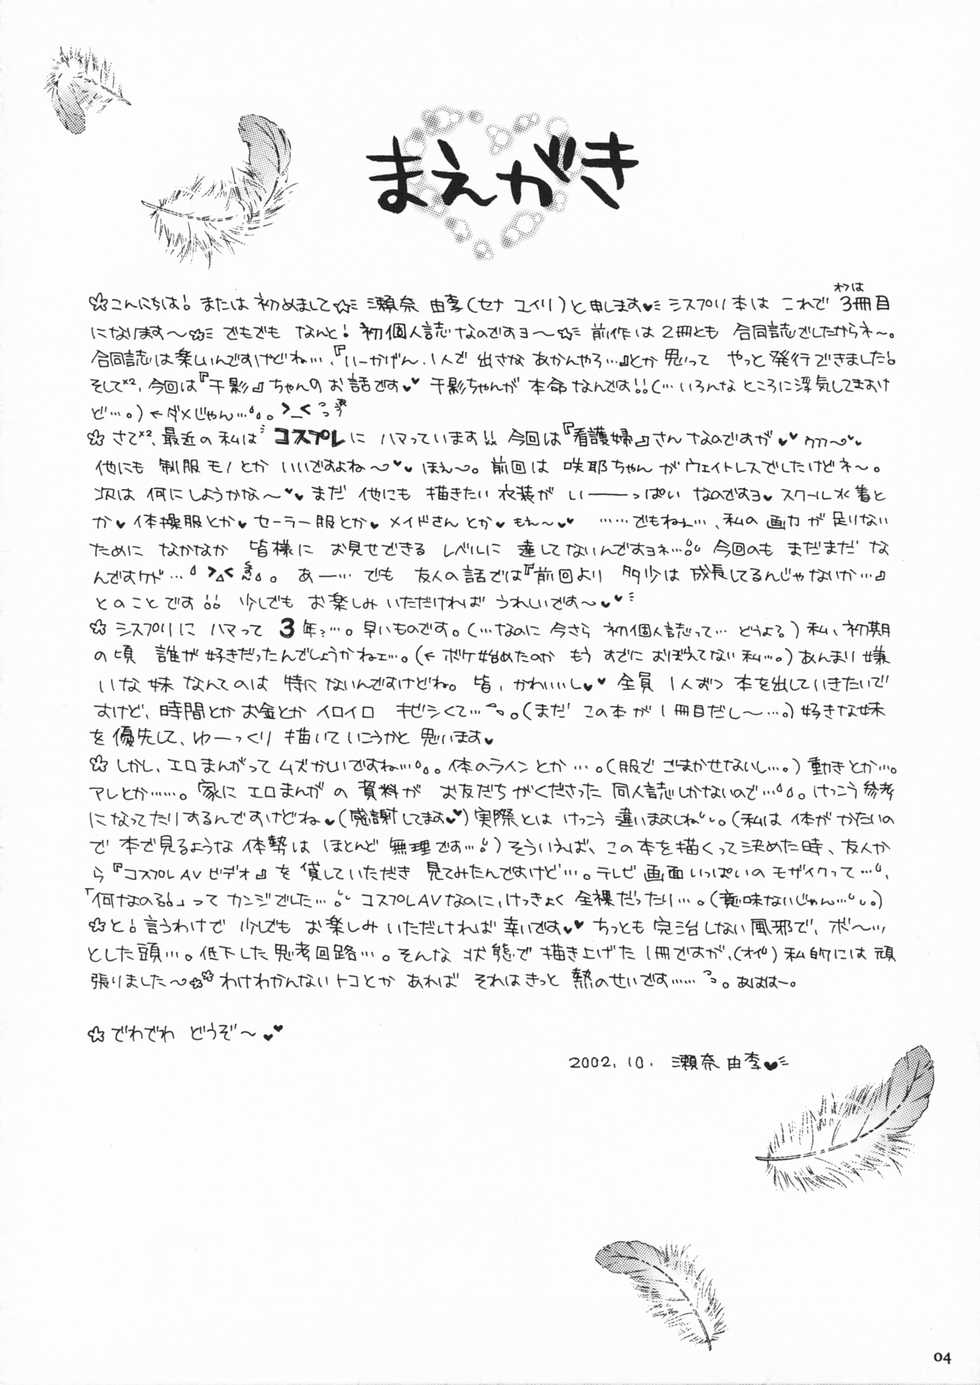 まえがき
✿こんにちは! または 初めまして☆ミ 瀬奈 由李(セナ ユイリ)と申します♥ シスプリ本は これで 3冊目
になります〜✿ミ でもでも なんと! 初個人誌なのですヨ〜✿ミ 前作は 2冊とも 合同誌でしたからネ〜。
合同誌は楽しいんですけどね…、『いーかげん、1人で 出さな あかんやろ…』とか思って やっと発行できました!
そして×2、今回は『千影』ちゃんのお話です♥ 千影ちゃんが 本命なんです!!(…いろんなところに浮気してますけ
ど…。)←ダメじゃん…。 >_<
✿さて×2、最近の私は コスプレに ハマっています!! 今回は『看護婦』さんなのですが♥♥
他にも 制服モノとか いいですよね〜♥ ほえ〜。前回は 咲耶ちゃんがウェイトレスでしたけどネ〜。
次は 何にしようかな〜♥♥ まだ 他にも 描きたい衣装が いーーっぱい なのですヨ♥ スクール水着と
か♥体操服とか♥セーラー服とか♥メイドさんとか♥もえ〜♥♥ ……でもねぇ…、私の画力が足りない
ために なかなか 皆様に お見せできる レベルに 達してないんですヨネ…。 今回のも まだまだ な
んですケド… >△< 。 あー… でも 友人の話では『前回より 多少は 成長してるんじゃないか…』
とのことです!! 少しでも お楽しみいただければ うれしいです〜♥♥
✿シスプリに ハマって 3年?…。早いものです。(…なのに 今さら 初個人誌って… どうよ?) 私、初期
の頃 誰が好きだったんでしょうかねェ…。(←ボケ始めたのか もう すでに おぼえてない私…。)あんまり嫌
いな妹 なんてのは 特にないんですけどね。皆、かわいいし♥♥ 全員 1人ずつ 本を出していきたいで
すけど、時間とかお金とか イロイロ キビシくて…。(まだ この本が1冊目だし〜…。)好きな妹
を優先して、ゆーっくり 描いていこうかと 思います♥
✿しかし、エロまんがって ムズかしいですね…。体のラインとか…。(服で ごまかせないし…。)動きとか…。
アレとか……。家に エロまんが の 資料が お友だちがくださった 同人誌しかないので…。けっこう参考
になってたりするんですけどね♥(感謝してます♥)実際とは けっこう 違いますしね。(私は 体がかたいの
で 本で見るような 体勢は ほとんど 無理です…)そういえば、この本を描くって決めた時、友人か
ら『コスプレAVビデオ』を 貸していただき 見てみたんですけど…。テレビ画面 いっぱいの モザイクって…、
「何なのる」って カンジでした…。 コスプレAVなのに、けっきょく 全裸だったり…。(意味ないじゃん…。)
✿と!言うわけで 少しでも お楽しみいただければ 幸いです♥ ちっとも 完治しない風邪で、ボ〜ッ
とした頭…。低下した思考回路…。そんな 状態で 描き上げた 1冊ですが、(オイ)私的には 頑
張りました〜✿✿ わけわかんないトコとか あれば それはきっと 熱のせいです……。あはは〜。
✿でわでわ どうぞ〜♥♥
2002.10. 瀬奈 由李♥ミ
04